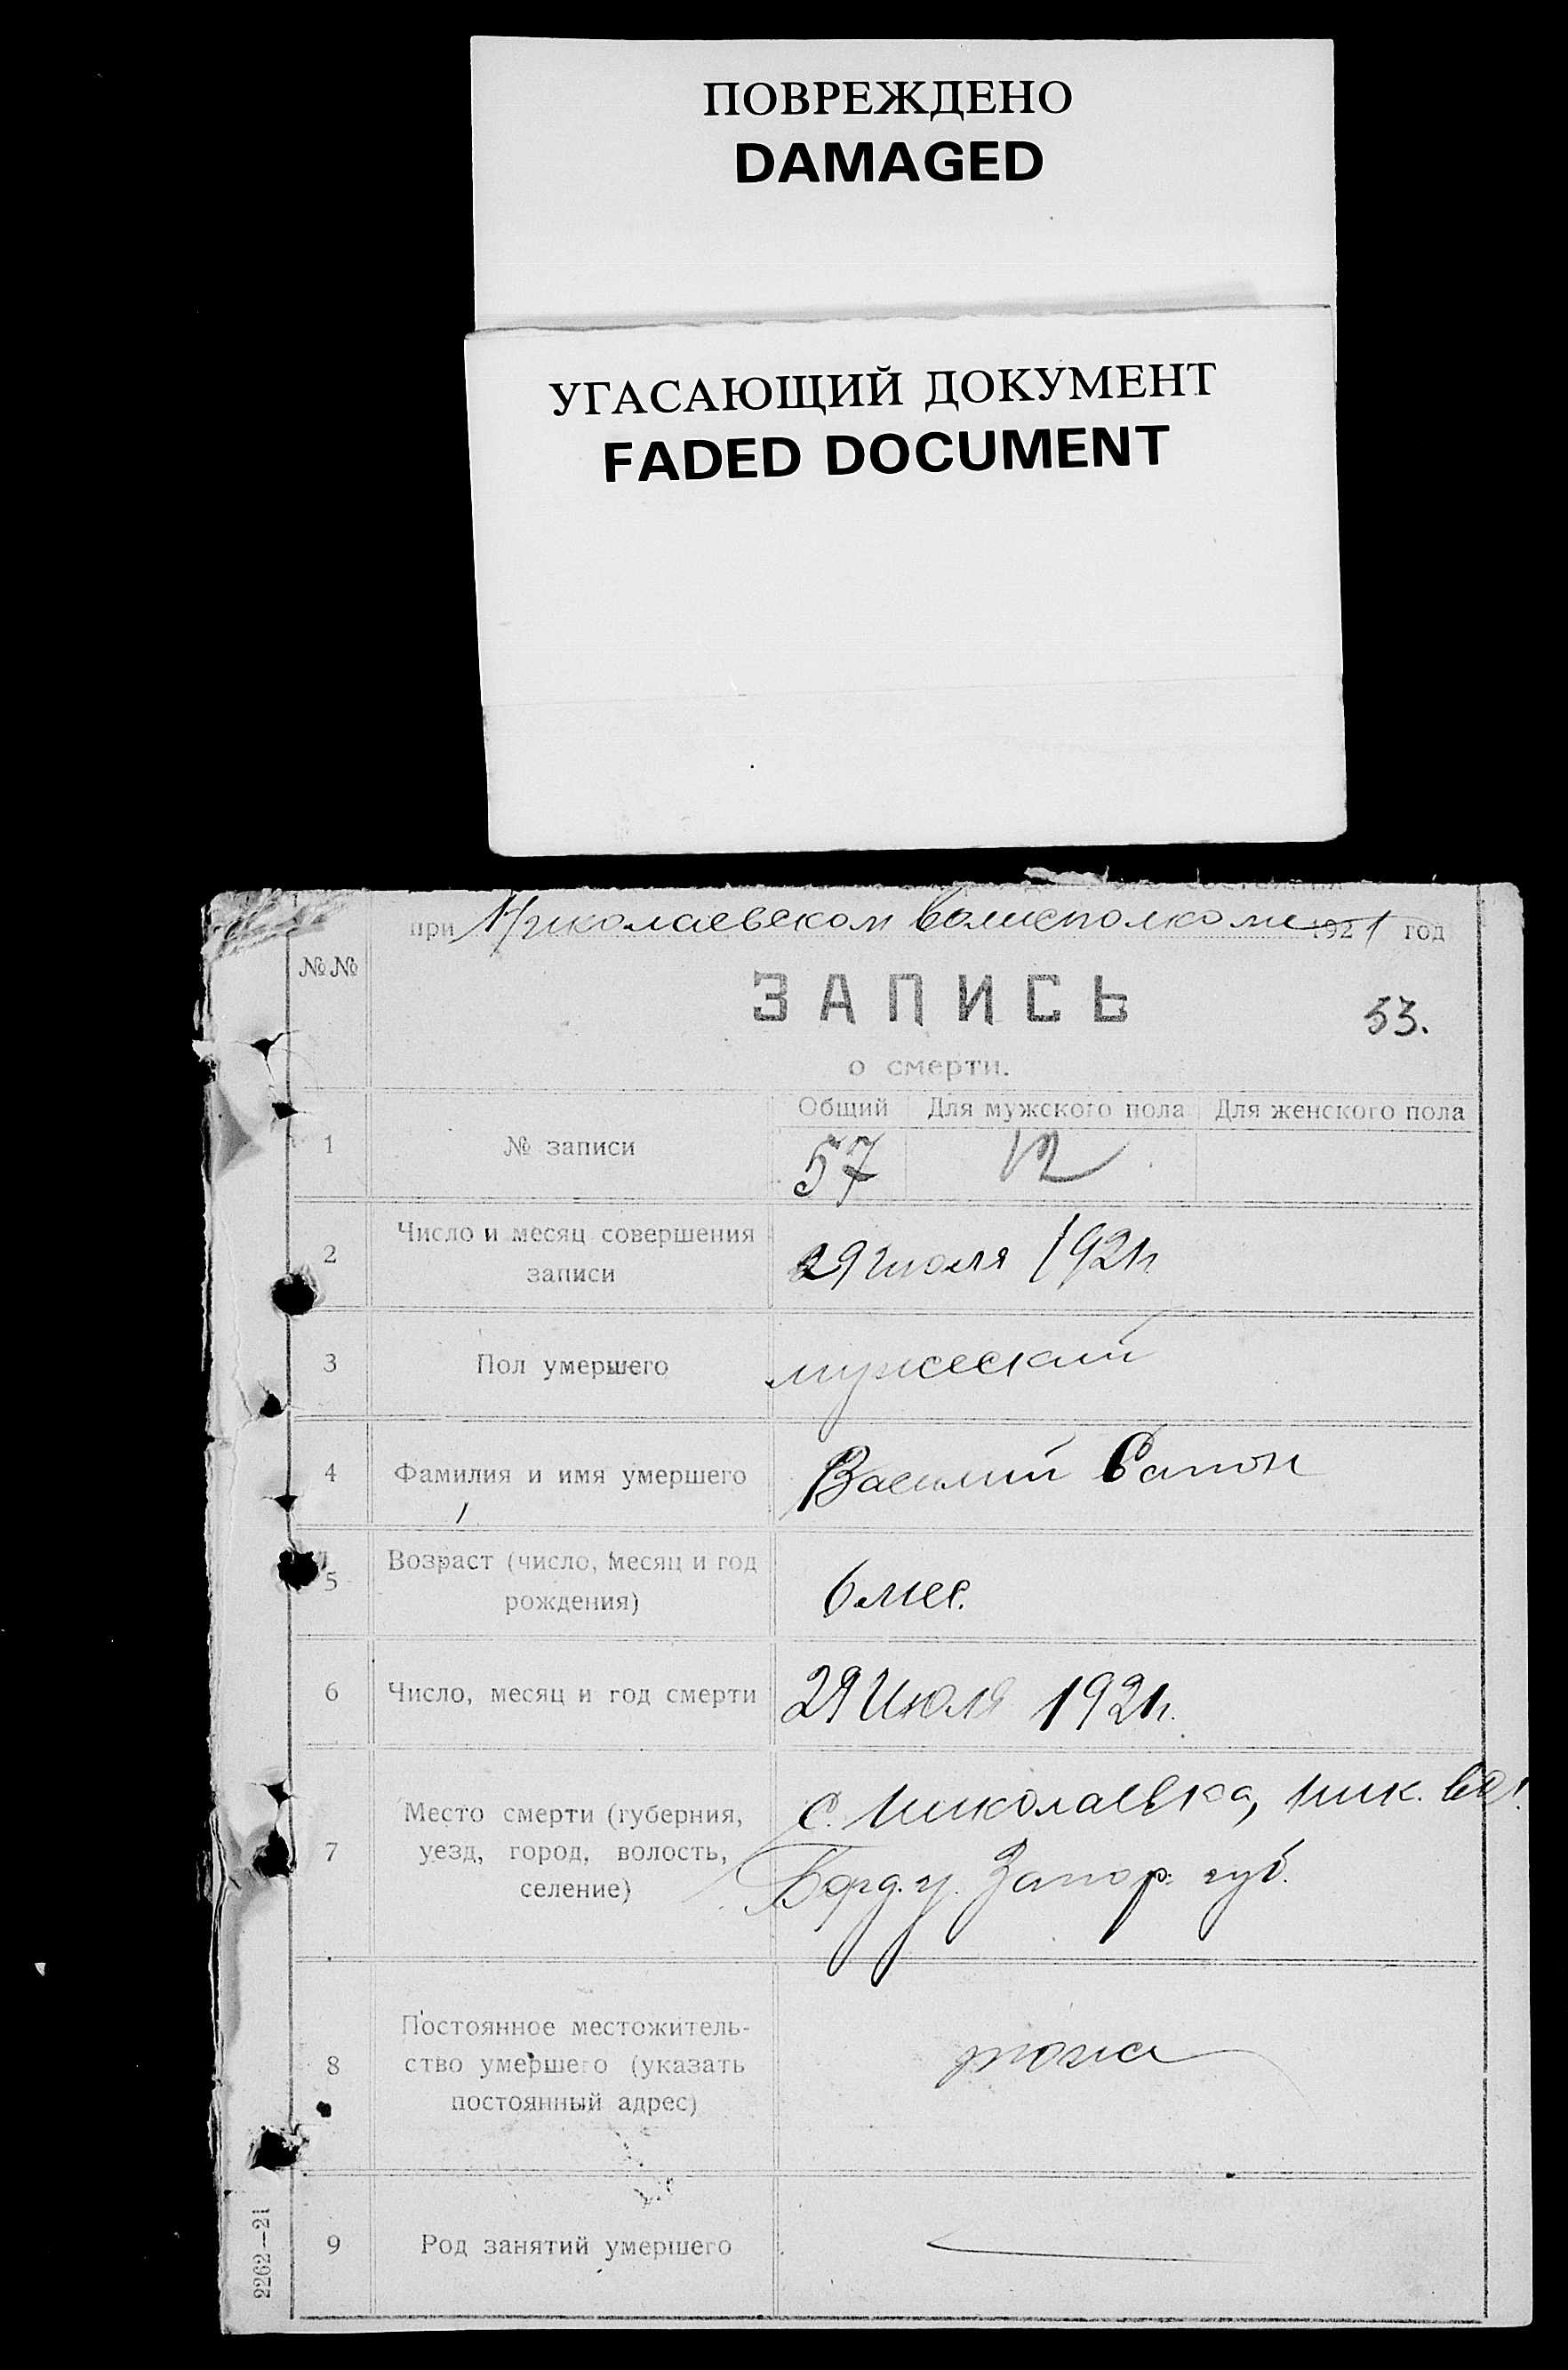 ПОВРЕЖДЕНО
DAMAGED
УГАСАЮЩИЙ ДОКУМЕНТ
FADED DOCUMENT
при Николаевском волисполкоме 1921 год
№№
ЗАПИСЬ
53.
о смерти.
Общий Для мужского пола Для женского пола
1 № записи 57
2 Число и месяц совершения
записи
29 июля 1921г.
3 Пол умершего мужеский
4 Фамилия и имя умершего Василий Сапон
5 Возраст (число, месяц и год
рождения)
6 мес.
6 Число, месяц и год смерти 29 Июля 1921г.
7 Место смерти (губерния,
уезд, город, волость,
селение)
с. Николаевка, Ник. вол.
Берд. у. Запор. губ.
8 Постоянное местожитель-
ство умершего (указать
постоянный адрес)
9 Род занятий умершего
2262—21